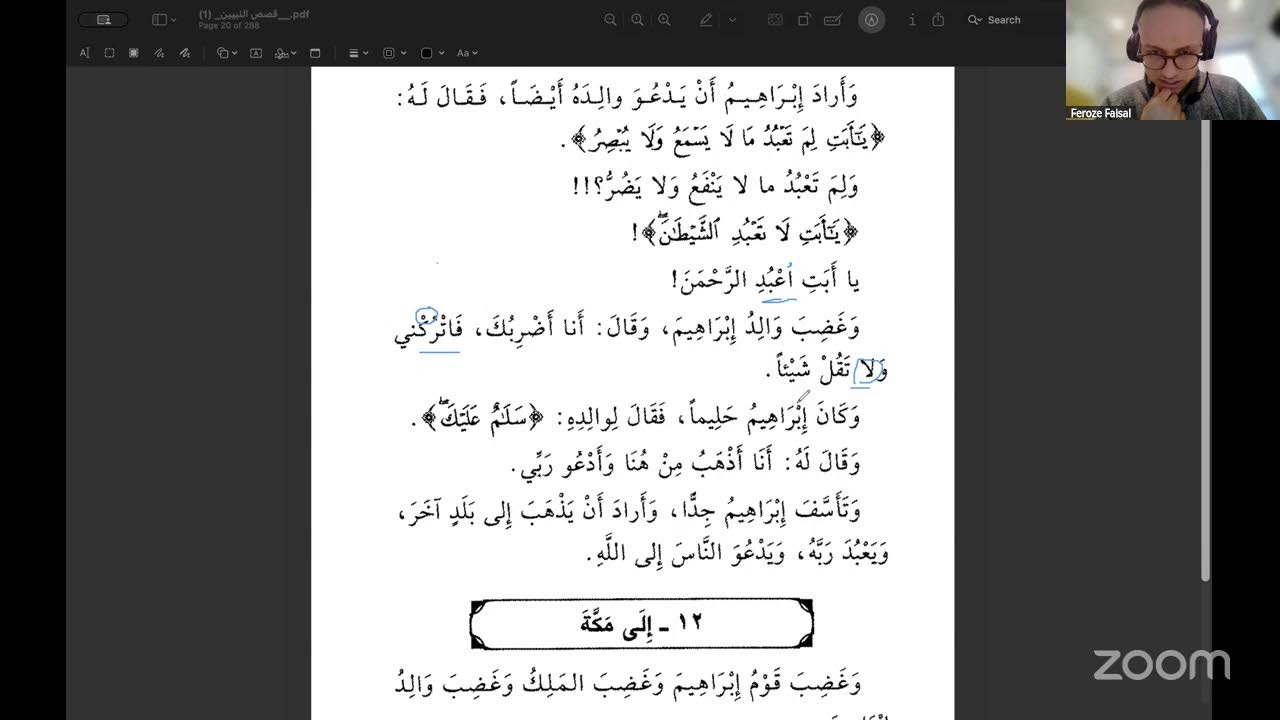 (1) _قصص النبيين__.pdf
Page 20 of 288
Search
Aa
Feroze Faisal
وَأَرادَ إِبْـرَاهِـيـمُ أَنْ يَـدْعُـوَ والِـدَهُ أَيْـضَـاً، فَـقَـالَ لَـهُ:
﴿يَٰٓأَبَتِ لِمَ تَعۡبُدُ مَا لَا يَسۡمَعُ وَلَا يُبۡصِرُ﴾.
وَلِمَ تَعْبُدُ ما لا يَنْفَعُ وَلا يَضُرُّ؟!!
﴿يَٰٓأَبَتِ لَا تَعۡبُدِ ٱلشَّيۡطَٰنَۖ﴾!
يا أَبَتِ اُعْبُدِ الرَّحْمَنَ!
وَغَضِبَ وَالِدُ إِبْرَاهِيمَ، وَقَالَ: أَنا أَضْرِبُكَ، فَاتْرُكْني
وَلا تَقُلْ شَيْئاً.
وَكَانَ إِبْرَاهِيمُ حَلِيماً، فَقَالَ لِوالِدِهِ: ﴿سَلَٰمٌ عَلَيۡكَۖ﴾.
وَقَالَ لَهُ: أَنَا أَذْهَبُ مِنْ هُنَا وَأَدْعُو رَبِّي.
وَتَأَسَّفَ إِبْرَاهِيمُ جِدًّا، وَأَرادَ أَنْ يَذْهَبَ إِلى بَلَدٍ آخَرَ،
وَيَعْبُدَ رَبَّهُ، وَيَدْعُوَ النَّاسَ إِلى اللَّهِ.
١٢ ـ إِلَى مَكَّةَ
وَغَضِبَ قَوْمُ إِبْرَاهِيمَ وَغَضِبَ المَلِكُ وَغَضِبَ وَالِدُ
zoom